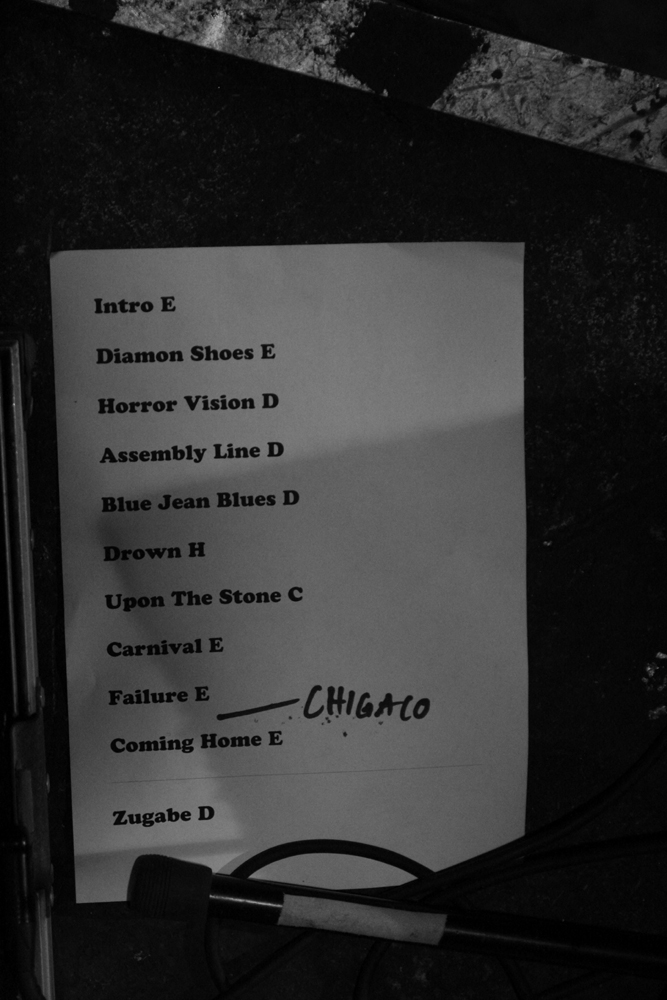 Intro E
Diamon Shoes E
Horror Vision D
Assembly Line D
Blue Jean Blues D
Drown H
Upon The Stone C
Carnival E
Failure E
CHIGACO
Coming Home E
Zugabe D